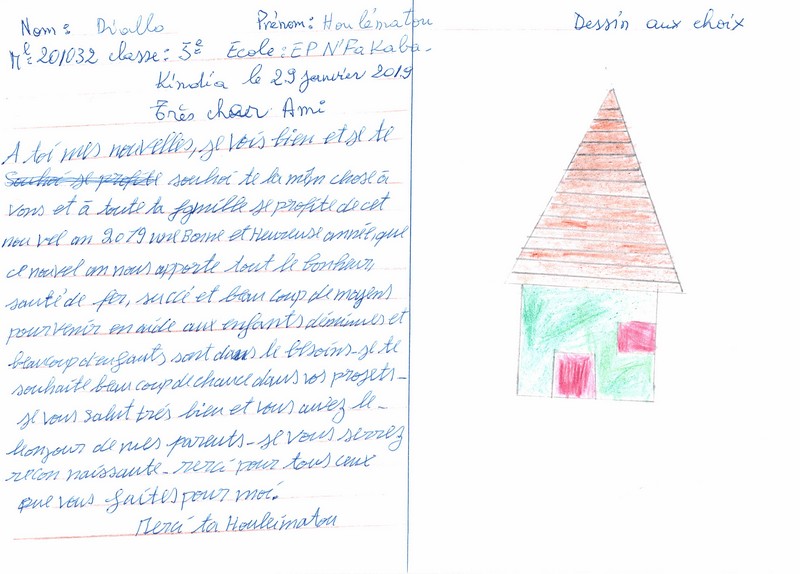 Nom : Diallo Prénom : Houlématou
Mle 201032 classe : 5e Ecole : EP N'Fa Kaba.
Kindia le 29 janvier 2019
Très cher Ami
A toi mes nouvelles, je vois bien et je te
Souhai je profite souhai te la mêm chose à
vous et à toute ta famille je profite de cet
nouvel an 2019 une Bonne et Heureuse année, que
ce nouvel an nous apporte tout le bonheur,
santé de fer, succé et beau coup de moyens
pour venir en aide aux enfants déminues et
beaucoup d'enfants sont dans le besoins - je te
souhaite beau coup de chance dans vos projets -
je vous salut très bien et vous avez le -
bonjour de mes parents - je vous serrez
recon naissante - merci pour tous ceux
que vous faites pour moi.
Merci ta Houleimatou
Dessin aux choix